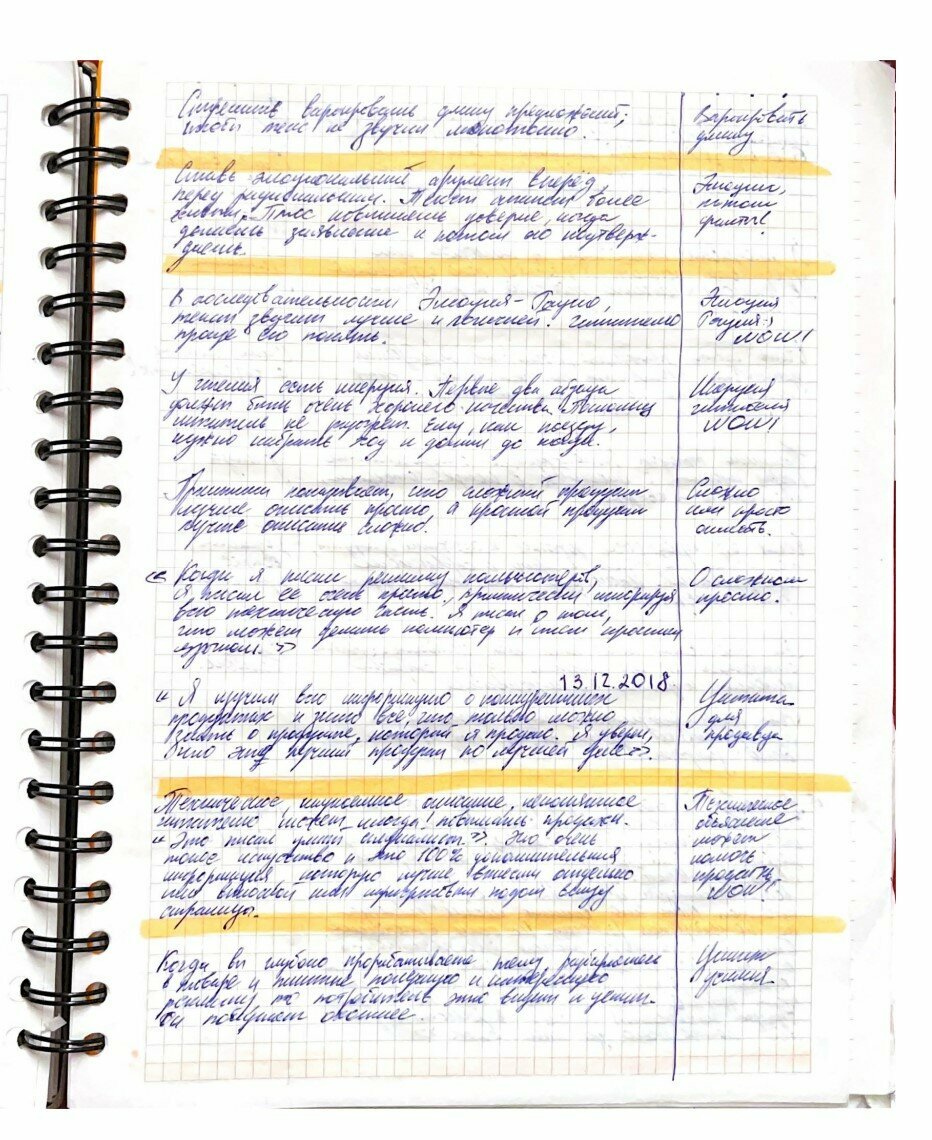 варьирование длину предложений,
чтобы текс не звучал монотонно.
Варьировать
длину
Ставь эмоциональный аргумент вперёд,
перед рациональным. Текст становит более
живым. Плюс повышаешь доверие, когда
делаешь заявление и потом его подтверж-
даешь.
Эмоции,
потом
факты!
В последовательности Эмоция-Рацио,
текст звучит лучше и логичней. Читателю
проще его понять.
Эмоция
Рацио
WOW!
У чтения есть инерция. Первые два абзаца
должен быть очень хорошего качества. Поскольку
читатель не разогрет. Ему, как поезду,
нужно набрать ход и дойти до конца.
Инерция
читателя
WOW!
Практики показывает, что сложный продукт
лучше описать просто, а простой продукт
лучше описать сложно.
Сложно
или просто
описать.
« Когда я писал рекламу компьютеров,
я писал её очень просто, практически игнорируя
всю техническую часть. Я писал о том,
что может делать компьютер и писал простым
языком. »
О сложном
просто.
13.12.2018
« Я изучил всю информацию о конкурентных
продуктах и знаю всё, что только можно
знать о продукте, который я продаю. Я уверен,
что это лучший продукт по лучшей цене».
Цитата
для
продавца
Техническое, описание, непонятное
читателю может иногда повышать продажи.
« Это писал умный специалист.» Это очень
тонкое искусство и это 100% дополнительная
информация которую лучше вынести отдельно
или выноской или мелким внизу
страницы.
Техническое
объяснение
может
помочь
продать
WOW!
Когда вы глубоко прорабатываете тему, разбираетесь
в товаре и пишите полезную и интересную
рекламу, то потребитель это видит и ценит.
Он покупает охотнее.
Ценит
усилия